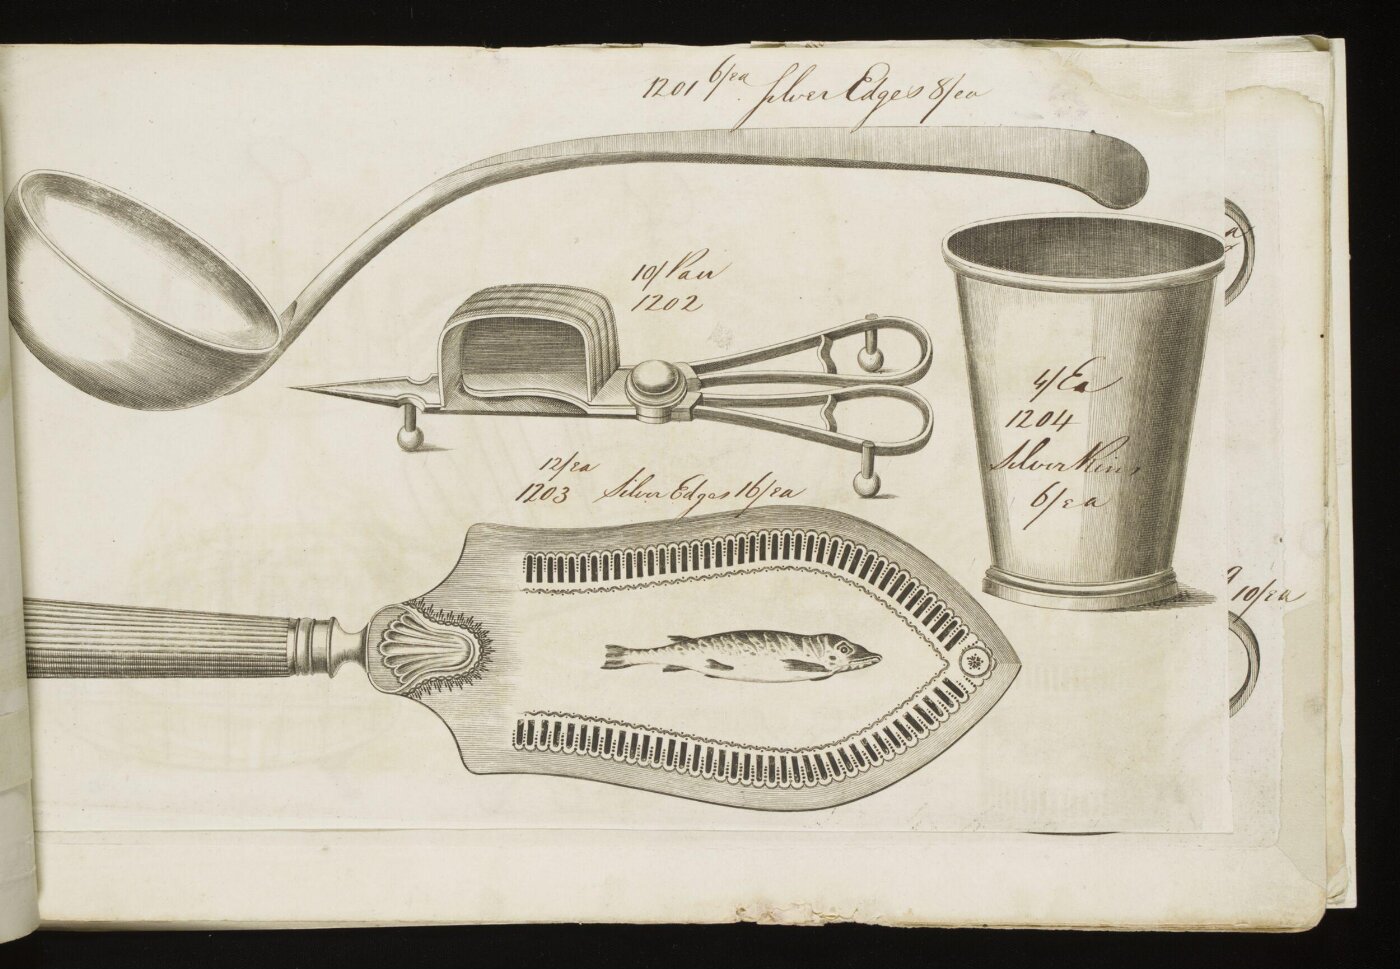 1201 6/ea Silver Edges 8/ea
10/ Pair
1202
4/Ea
1204
Silver Rims
6/ea
12/ea
1203 Silver Edges 16/ea
a
10/ea